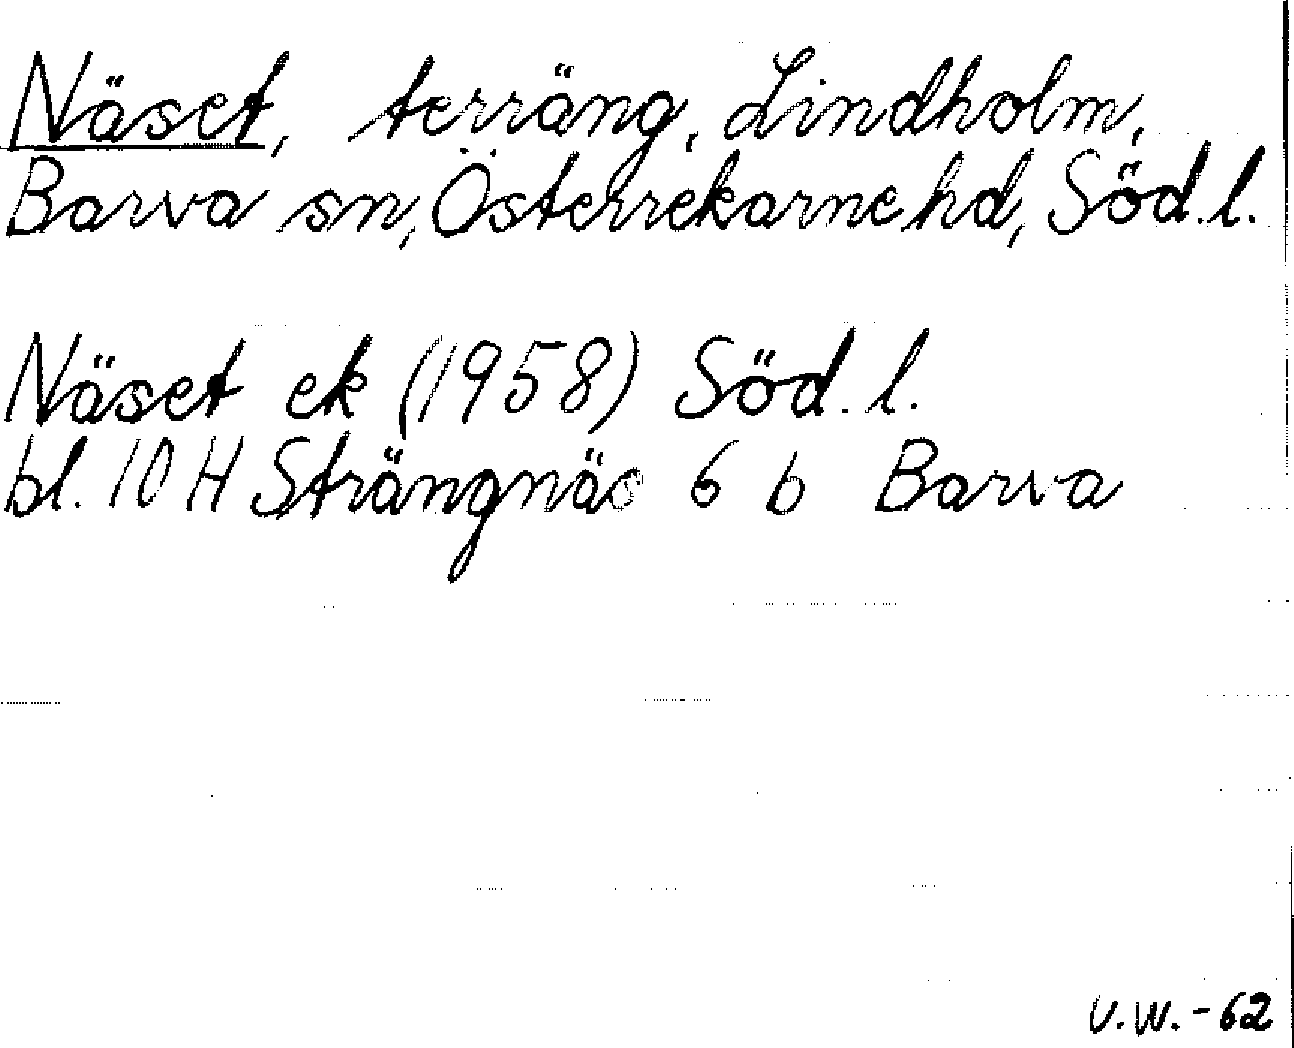 Näset, terräng, Lindholm,
Barva sn, Österrekarne hd, Söd. l.
Näset ek (1958) Söd. l.
bl. 10 H Strängnäs 6 b Barva
U.W. -62